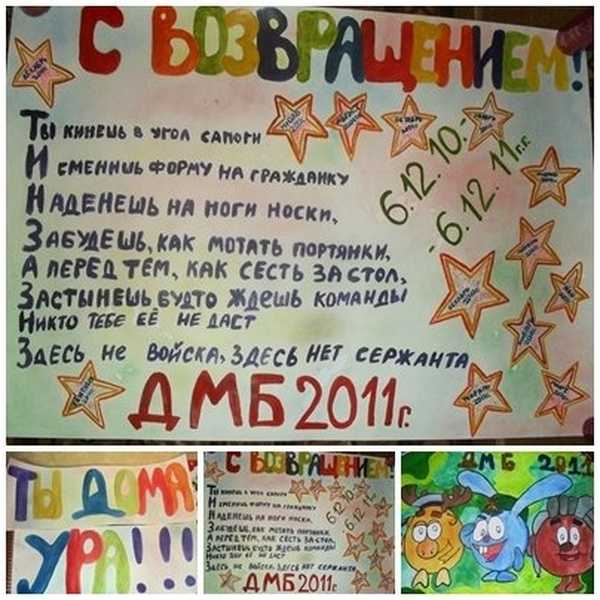 С ВОЗВРАЩЕНИЕМ!
Ты кинешь в угол сапоги
И сменишь форму на гражданку
Наденешь на ноги носки,
Забудешь, как мотать портянки,
А перед тем, как сесть за стол,
Застынешь будто ждешь команды
Никто тебе её не даст
Здесь не войска, здесь нет сержанта
6.12.10.-
-6.12.11г.г.
ДМБ 2011г.
ТЫ ДОМА
УРА!!!
С ВОЗВРАЩЕНИЕМ
Ты кинешь в угол сапоги
И сменишь форму на гражданку
Наденешь на ноги носки,
Забудешь, как мотать портянки,
А перед тем, как сесть за стол,
Застынешь будто ждешь команды
Никто тебе её не даст
Здесь не войска, здесь нет сержанта
ДМБ 2011г.
ДМБ 2011